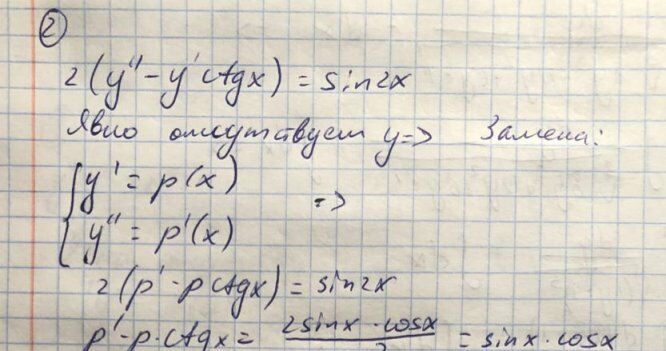 ②
2(y'' - y' ctgx) = sin2x
Явно отсутствует y => Замена:
{ y' = p(x)
=>
y'' = p'(x)
2(p' - p ctgx) = sin2x
p' - p · ctgx = 2sinx · cosx / 2 = sinx · cosx